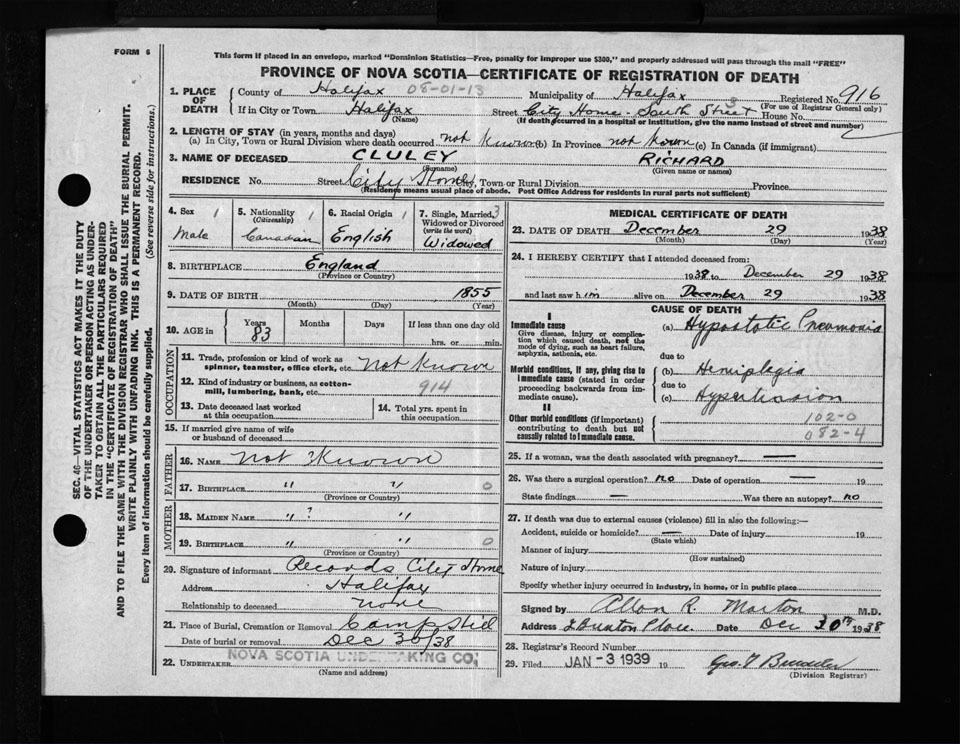 FORM 6
This form if placed in an envelope, marked "Dominion Statistics—Free, penalty for improper use $300," and properly addressed will pass through the mail "FREE"
PROVINCE OF NOVA SCOTIA—CERTIFICATE OF REGISTRATION OF DEATH
1. PLACE OF DEATH
County of Halifax 08-01-13 Municipality of Halifax Registered No. 916
(For use of Registrar General only)
If in City or Town Halifax Street City Home South Street House No.
(Name) (If death occurred in a hospital or institution, give the name instead of street and number)
2. LENGTH OF STAY (in years, months and days)
(a) In City, Town or Rural Division where death occurred not Known (b) In Province not Known (c) In Canada (if immigrant)
3. NAME OF DECEASED CLULEY RICHARD
(Surname) (Given name or names)
RESIDENCE No. Street City Home City, Town or Rural Division Province
(Residency means usual place of abode. Post Office Address for residents in rural parts not sufficient)
4. Sex 1 Male
5. Nationality 1 (Citizenship) Canadian
6. Racial Origin 1 English
7. Single, Married, 3 Widowed or Divorced (write the word) Widowed
8. BIRTHPLACE England
(Province or Country)
9. DATE OF BIRTH 1855
(Month) (Day) (Year)
10. AGE in Years 83 Months Days If less than one day old
hrs. or min.
OCCUPATION
11. Trade, profession or kind of work as spinner, teamster, office clerk, etc. Not Known
12. Kind of industry or business, as cotton-mill, lumbering, bank, etc. 914
13. Date deceased last worked at this occupation
14. Total yrs. spent in this occupation
15. If married give name of wife or husband of deceased
FATHER
16. NAME Not Known
17. BIRTHPLACE " " 0
(Province or Country)
MOTHER
18. MAIDEN NAME " ? "
19. BIRTHPLACE " " 0
(Province or Country)
20. Signature of informant Records City Home
Address Halifax
Relationship to deceased none
21. Place of Burial, Cremation or Removal Camp Hill
Date of burial or removal Dec 30/38
22. UNDERTAKER NOVA SCOTIA UNDERTAKING CO.
(Name and address)
MEDICAL CERTIFICATE OF DEATH
23. DATE OF DEATH December 29 1938
(Month) (Day) (Year)
24. I HEREBY CERTIFY that I attended deceased from:
1938 to December 29 1938
and last saw him alive on December 29 1938
CAUSE OF DEATH
I
Immediate cause
Give disease, injury or complication which caused death, not the mode of dying, such as heart failure, asphyxia, asthenia, etc.
(a) Hypostatic Pneumonia
due to
Morbid conditions, if any, giving rise to immediate cause (stated in order proceeding backwards from immediate cause).
(b) Hemiplegia
due to
(c) Hypertension
II
Other morbid conditions (if important) contributing to death but not causally related to immediate cause.
102-0
082-4
25. If a woman, was the death associated with pregnancy? —
26. Was there a surgical operation? no Date of operation — 19
State findings — Was there an autopsy? no
27. If death was due to external causes (violence) fill in also the following:—
Accident, suicide or homicide? — Date of injury 19
(State which)
Manner of injury
(How sustained)
Nature of injury
Specify whether injury occurred in industry, in home, or in public place
Signed by Allan R. Morton M.D.
Address Date Dec 30th 1938
28. Registrar's Record Number
29. Filed JAN - 3 1939 19 Geo.
(Division Registrar)
SEC. 46—VITAL STATISTICS ACT MAKES IT THE DUTY
OF THE UNDERTAKER OR PERSON ACTING AS UNDER-
TAKER TO OBTAIN ALL THE PARTICULARS REQUIRED
IN THE "CERTIFICATE OF REGISTRATION OF DEATH"
AND TO FILE THE SAME WITH THE DIVISION REGISTRAR WHO SHALL ISSUE THE BURIAL PERMIT.
WRITE PLAINLY WITH UNFADING INK. THIS IS A PERMANENT RECORD.
Every item of information should be carefully supplied. (See reverse side for instructions.)